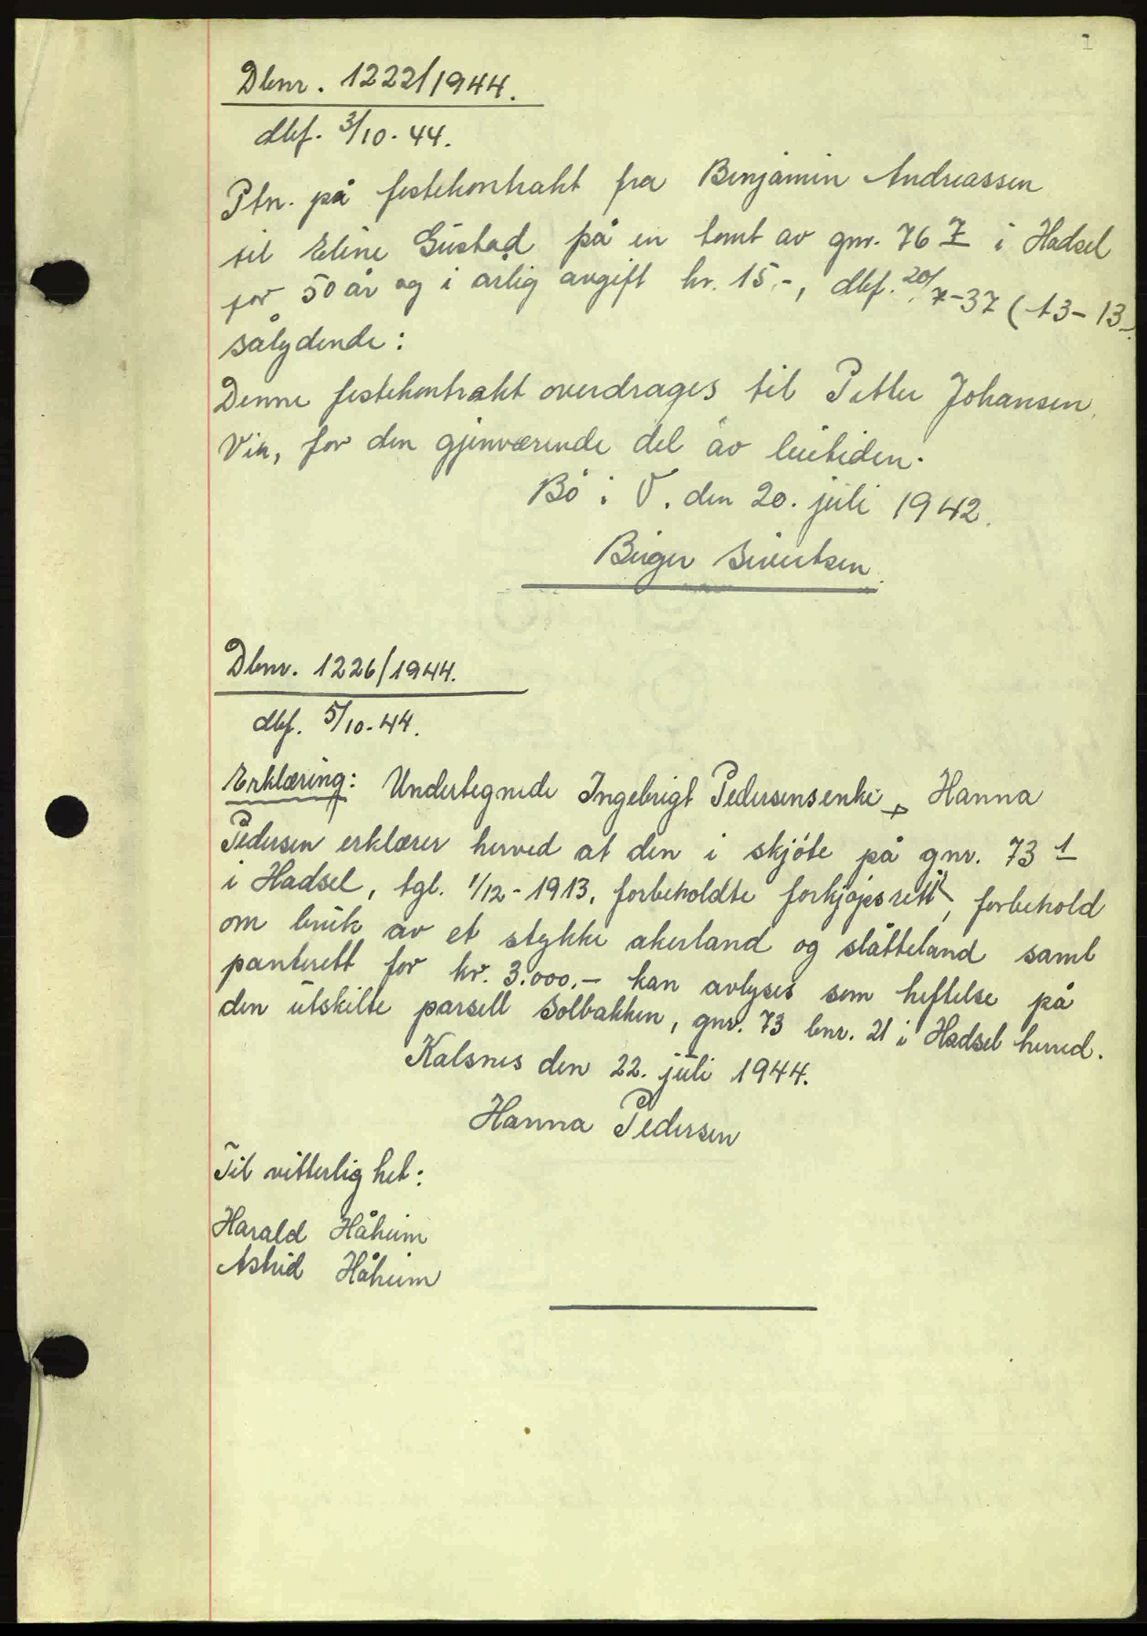 1
Dbnr. 1222/1944.
dbf. 3/10-44.
Ptn. på festekontrakt fra Benjamin Andreassen
til Eline Gustad på en tomt av gnr. 76 7 i Hadsel
for 50 år og i årlig avgift kr. 15,-, dbf. 20/7-37 (13-13-
sålydende:
Denne festekontrakt overdrages til Petter Johansen,
Vik, for den gjenværende del av leietiden.
Bö i V. den 20. juli 1942.
Birger Sivertsen.
Dbnr. 1226/1944.
dbf. 5/10-44.
Erklæring: Undertegnede Ingebrigt Pedersens enke, Hanna
Pedersen erklærer herved at den i skjöte på gnr. 73 1
i Hadsel, tgl. 1/12-1913, forbeholdte forkjøpsrett, forbehold
om bruk av et stykke åkerland og slåtteland samt
panterett for kr. 3.000.- kan avlyses som heftelse på
den utskilte parsell Solbakken, gnr. 73 bnr. 21 i Hadsel herred.
Kalsnes den 22. juli 1944.
Hanna Pedersen
Til vitterlighet:
Harald Håheim
Astrid Håheim